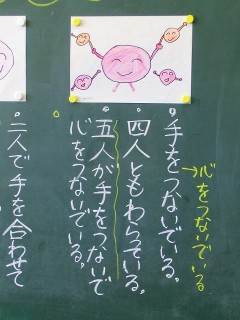 →心をつないでいる
手をつないでいる。
四人ともわらっている。
五人が手をつないで
心をつないでいる。
二人で手を合わせて